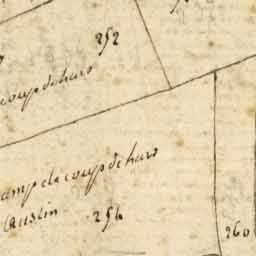 252
coupdehard
amp de coup de hard
Austin 254
260